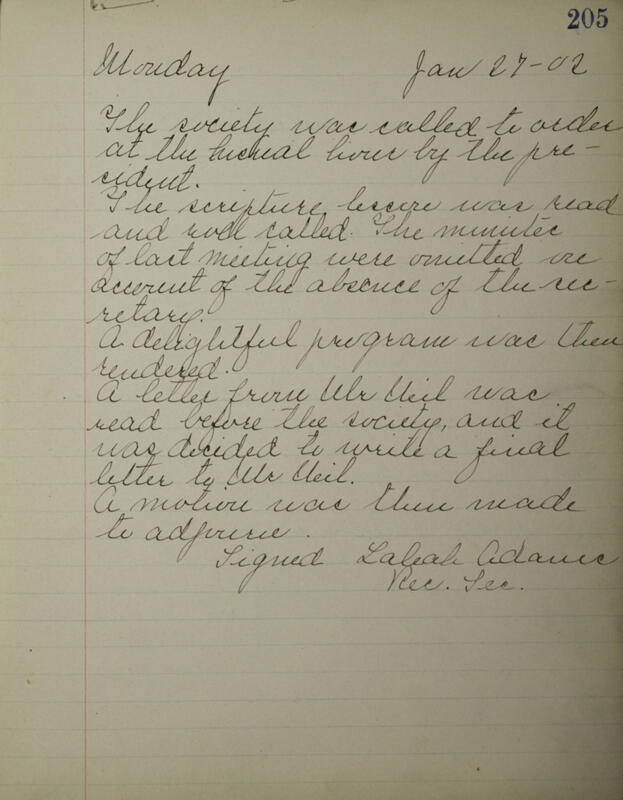 205
Monday Jan 27-02
The society was called to order
at the usual hour by the pre-
sident.
The scripture lesson was read
and roll called. The minutes
of last meeting were omitted on
account of the absence of the sec-
retary.
A delightful program was then
rendered.
A letter from Mr Neil was
read before the society, and it
was decided to write a final
letter to Mr Neil.
A motion was then made
to adjourn.
Signed Adams
Rec. Sec.